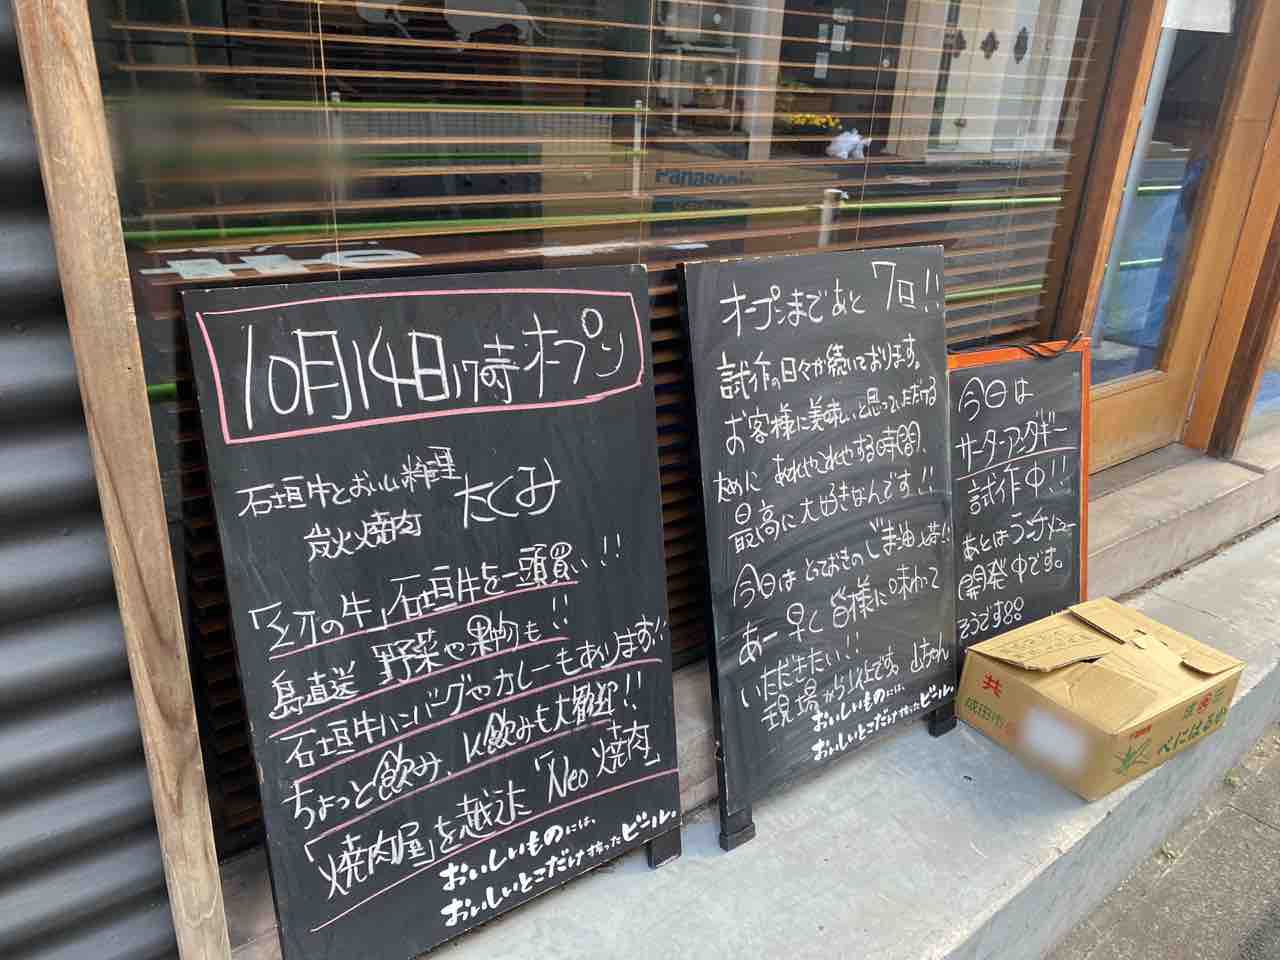 10月14日17時オープン
石垣牛とおいしい料理
炭火焼肉 たくみ
「幻の牛」石垣牛を一頭買い!!
島直送 野菜や果物も!!
石垣牛ハンバーグやカレーもあります!!
ちょっと飲み、
「焼肉屋」を越えた「Neo焼肉」
おいしいものには、
おいしいとこだけ搾ったビール。
オープンまであと7日!!
試作の日々が続いております。
お客様に美味しいと思っていただける
ために あれやこれやする時間、
最高に大好きなんです!!
今日はとっておきのごま油
あー早く皆様に味わって
いただきたい!!
現場から以上です。山ちゃん
おいしいものには、
おいしいとこだけ搾ったビール。
今日は
サーターアンダギー
試作中!!
あとはランチメニュー
開発中です。
そうです。
Panasonic
共
成田市
べにはるか